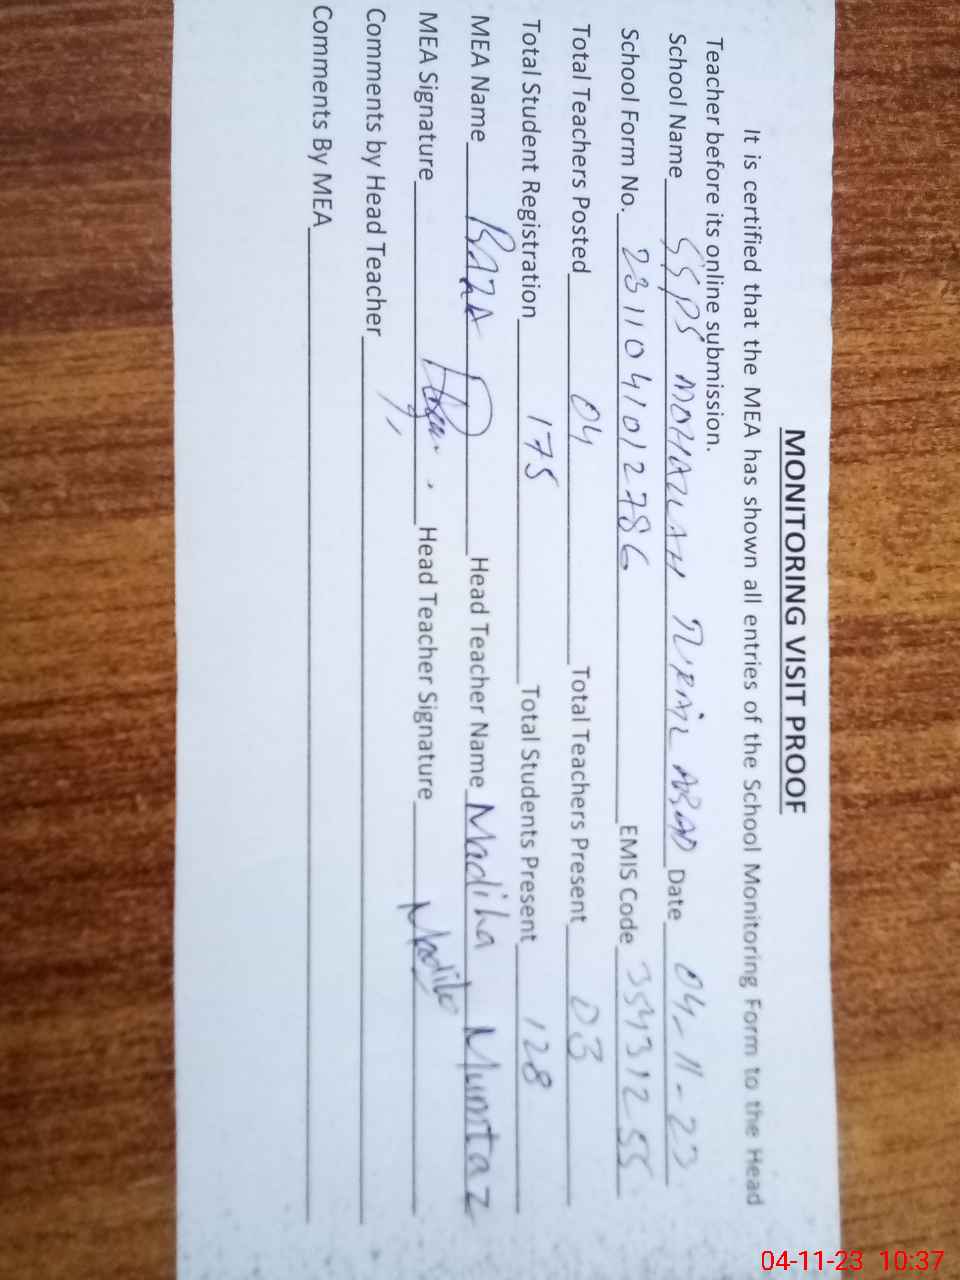 MONITORING VISIT PROOF
It is certified that the MEA has shown all entries of the School Monitoring Form to the Head
Teacher before its online submission.
School Name GGPS MOHALLAH ABAD Date 04-11-23
School Form No. 2311041012786 EMIS Code 35431255
Total Teachers Posted 04 Total Teachers Present 03
Total Student Registration 175 Total Students Present 128
MEA Name RAZA Head Teacher Name Madiha Mumtaz
MEA Signature Head Teacher Signature Madiha
Comments by Head Teacher
Comments By MEA
04-11-23 10:37